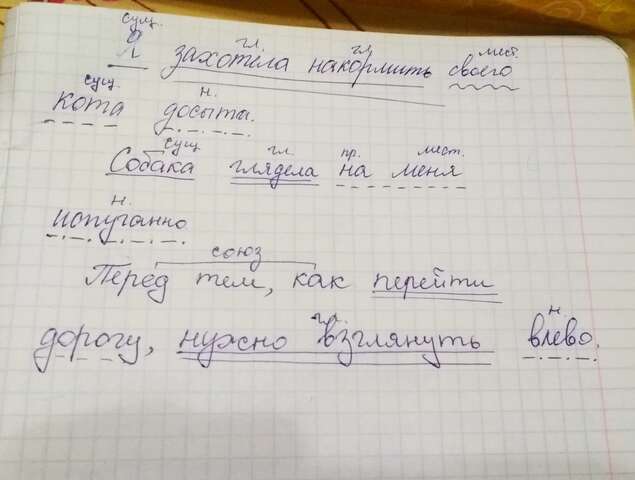 сущ. гл. гл. мест.
Я захотела накормить своего
сущ. н.
кота досыта.
сущ гл. пр. мест.
Собака глядела на меня
н.
испуганно.
союз
Перед тем, как перейти
гл. н.
дорогу, нужно взглянуть влево.